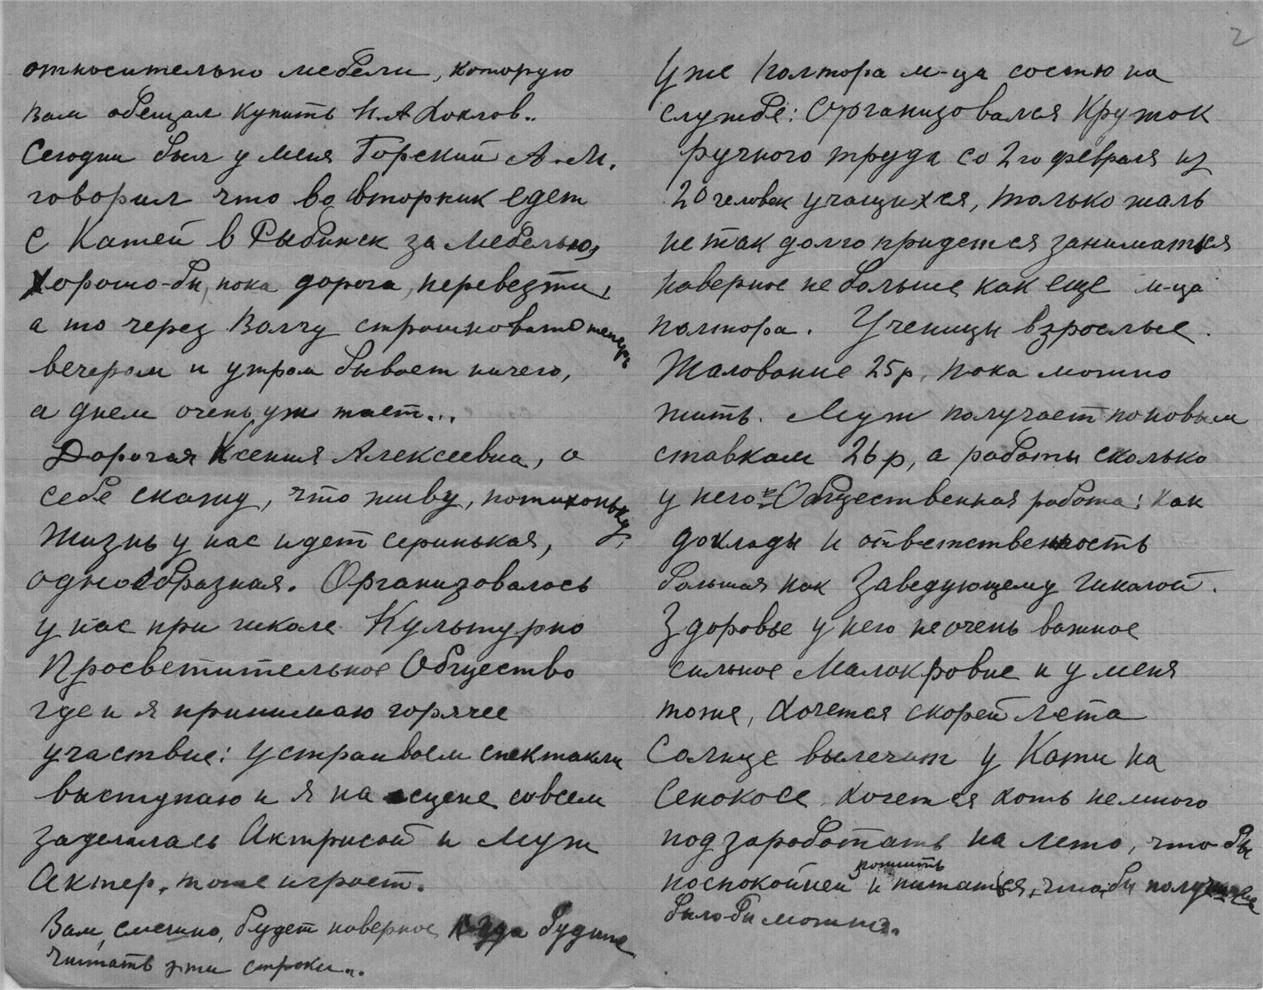 относительно мебели, которую
вам обещал купить Н.А Хохлов..
Сегодня был у меня Горский А.М.
говорил что во вторник едет
с Катей в Рыбинск за мебелью,
хорошо-бы, пока дорога, перевезти,
а то через Волгу страшновато теперь
вечером и утром бывает ничего,
а днем очень уж тает...
Дорогая Ксения Алексеевна, о
себе скажу, что живу, потихоньку,
Жизнь у нас идет серинькая,
однообразная. Организовалось
у нас при школе Культурно
Просветительное Общество
где и я принимаю горячее
участвие: устраиваем спектакли
выступаю и я на сцене совсем
заделалась Актрисой и Муж
Актер, тоже играет.
Вам, смешно, будет наверное когда будите
читать эти строки...
2
Уже полтора м-ца состою на
службе: Организовался Кружок
ручного труда со 2го февраля из
20 человек учащихся, только жаль
не так долго придется заниматься
наверное не больше как еще м-ца
полтора. Ученицы взрослые.
Жалование 25р, пока можно
жить. Муж получает по новым
ставкам 26р, а работы сколько
у него и Общественная работа: как
доклады и ответственность
большая как Заведующему школой.
Здоровье у него не очень важное
сильное Малокровие и у меня
тоже, хочется скорей лета
Солнце вылечит у Кати на
Сенокосе хочется хоть немного
подзаработать на лето, что-бы
поспокойней пожить и питаться, что-бы получше
было-бы можно.